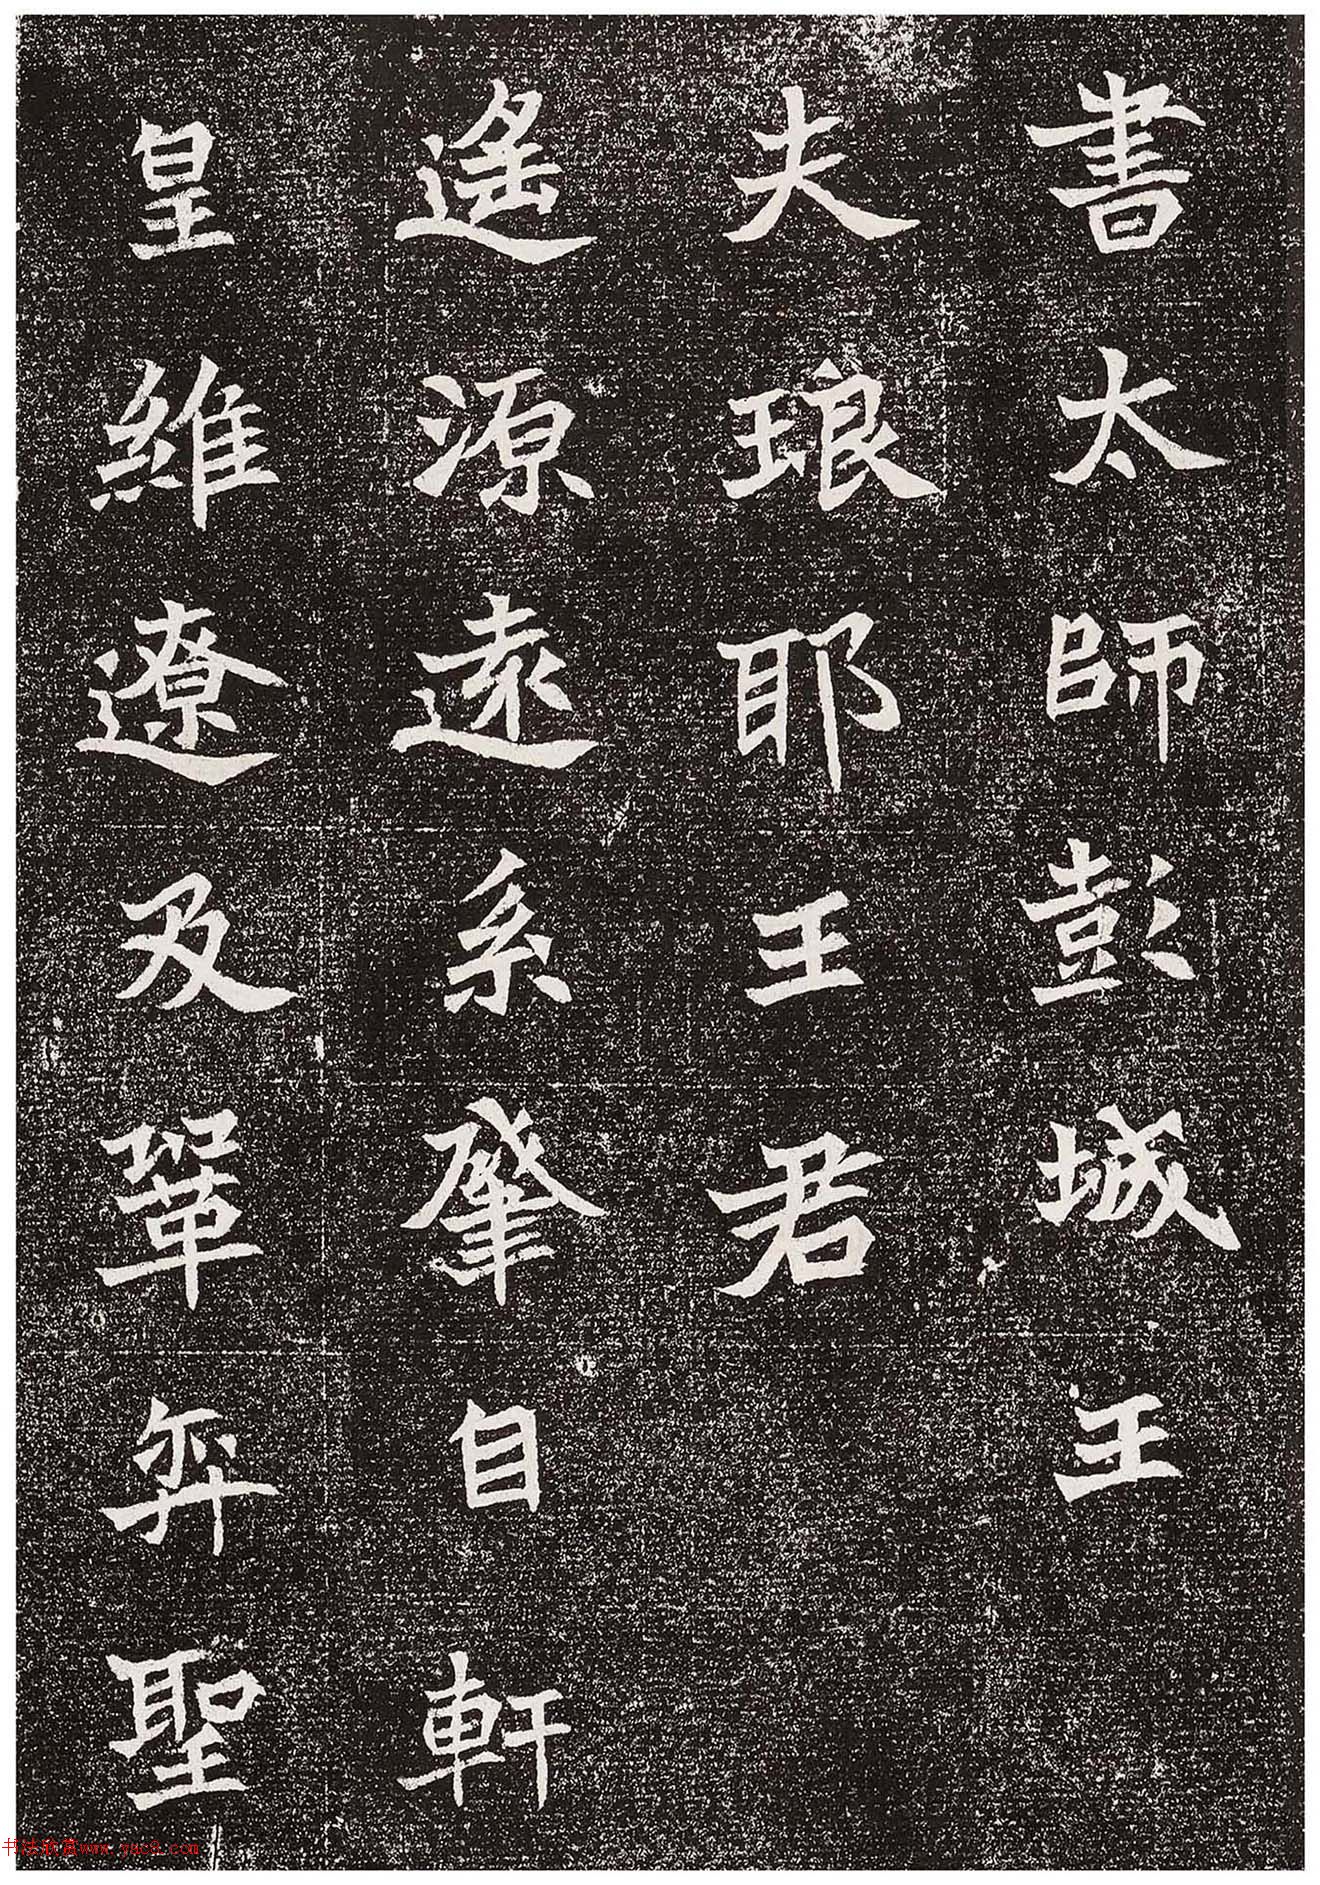 書太師彭城王
夫琅耶王君
遙源遠系肇自軒
皇維遼及鞏弈聖
书法欣赏www.yac8.com